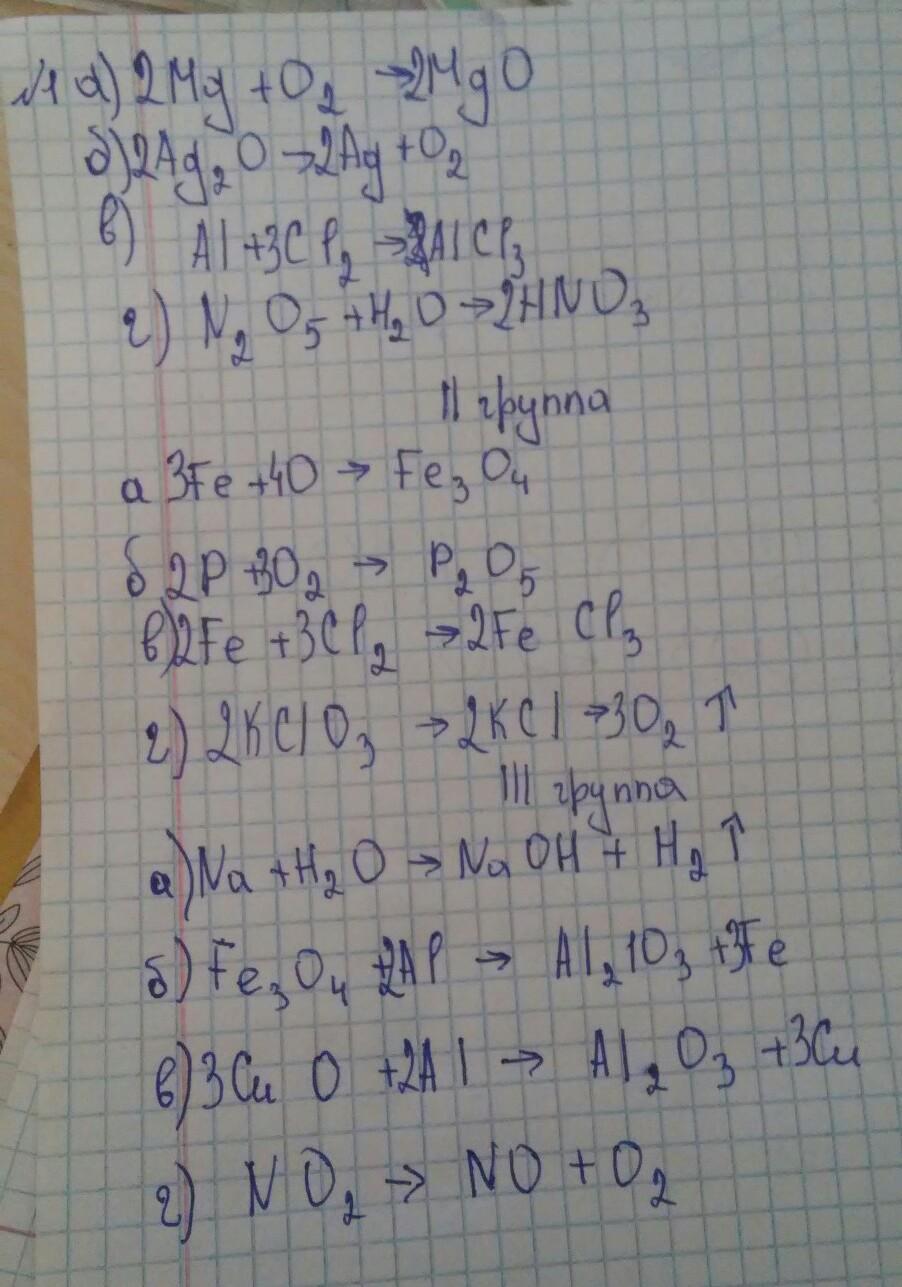 №1 а) 2Mg + O₂ → 2MgO
б) 2Ag₂O → 2Ag + O₂
в) Al + 3Cl₂ → AlCl₃
г) N₂O₅ + H₂O → 2HNO₃
II группа
а 3Fe + 4O → Fe₃O₄
б 2P + 3O₂ → P₂O₅
в) 2Fe + 3Cl₂ → 2Fe Cl₃
г) 2KClO₃ → 2KCl → 3O₂ ↑
III группа
а) Na + H₂O → NaOH + H₂ ↑
б) Fe₃O₄ + 2Al → Al₂1O₃ + 3Fe
в) 3Cu O + 2Al → Al₂O₃ + 3Cu
г) NO₂ → NO + O₂